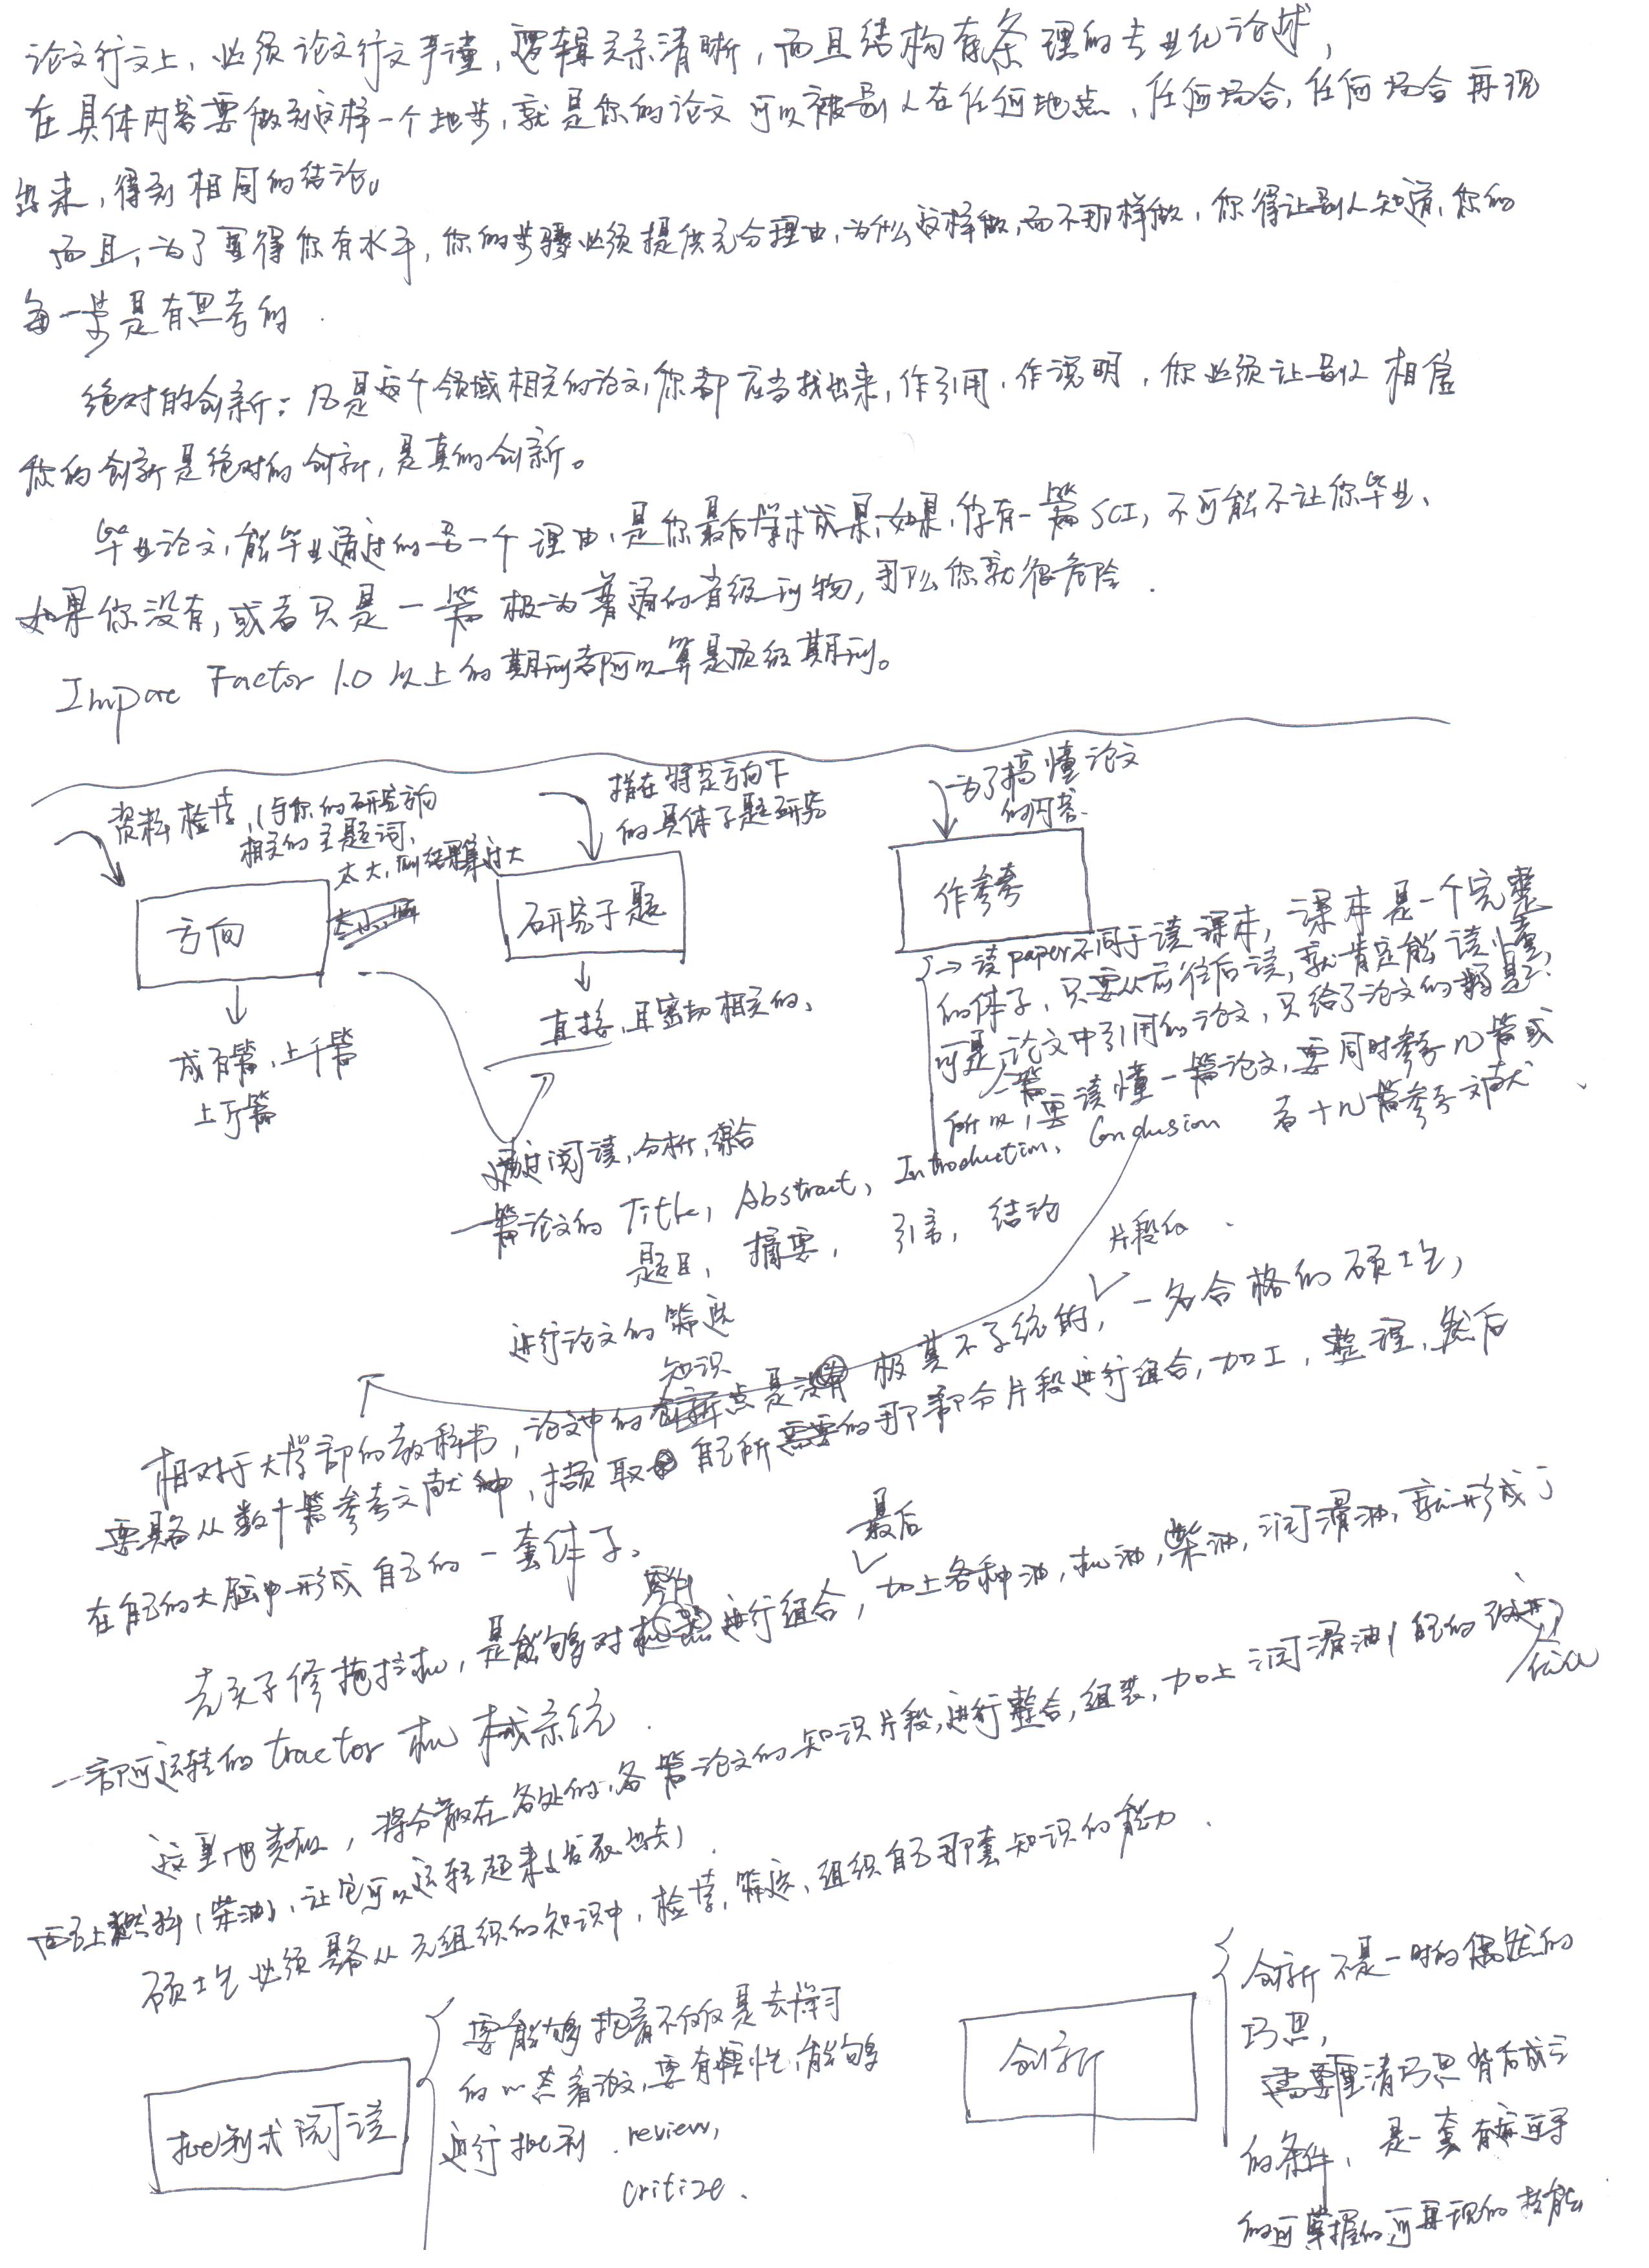 论文行文上，必须论文行文严谨，逻辑关系清晰，而且结构有条理的专业化论述，
在具体内容要做到这样一个地步，就是你的论文可以被别人在任何地点，任何场合，任何场合再现
出来，得到相同的结论。
而且，为了显得你有水平，你的步骤必须提供充分理由，为什么这样做，而不那样做，你得让别人知道，你的
每一步是有思考的．
绝对的创新：凡是这个领域相关的论文，你都应当找出来，作引用，作说明，你必须让别人相信
你的创新是绝对的创新，是真的创新。
毕业论文，能毕业通过的另一个理由，是你最后学术成果，如果，你有一篇SCI，不可能不让你毕业、
如果你没有，或者只是一篇极为普通的省级刊物，那么你就很危险．
Impac Factor 1.0以上的期刊都可以算是顶级期刊。
资料检索，(与你的研究方向
相关的主题词，
太大，则结果集过大
方向
成百篇，上千篇
上万篇
指在特定方向下
的具体子题研究
研究子题
直接，且密切相关的、
为了搞懂论文
的内容、
作参考
→读paper不同于读课本，课本是一个完整
的体系，只要从前往后读，就肯定能读懂，
可是一篇论文中引用的论文，只给了论文的标题．
所以，要读懂一篇论文，要同时参考n篇或
者十n篇参考文献
通过阅读，分析，综合
一篇论文的Title，Abstract，Introduction、Conclusion
题目，摘要，引言，结论
进行论文的筛选
片段的．
知识
相对于大学部的教科书，论文中的点是极其不系统的，一名合格的硕士生，
要具备从数十篇参考文献种，撷取自己所需要的那部分片段进行组合，加工，整理，然后
在自己的大脑中形成自己的一套体系。
零件
最后
老头子修拖拉机，是能够对进行组合，加上各种油，机油，柴油，润滑油，就形成了
一部可运转的tractor机械系统．
这里也类似，将分散在各处的，各篇论文的知识片段，进行整合，组装，加上润滑油（自己的改进）
优化
再加上燃料（柴油），让它可以运转起来（发表出去）．
硕士生必须具备从无组织的知识中，检索，筛选，组织自己那套知识的能力．
批判式阅读
要能够抱着不仅仅是去学习
的心态看论文，要有悟性，能够
进行批判．review，
critize．
创新
创新不是一时的偶然的
巧思，
需要厘清巧思背后成立
的条件，是一套有章可寻
的可掌握的可再现的技能